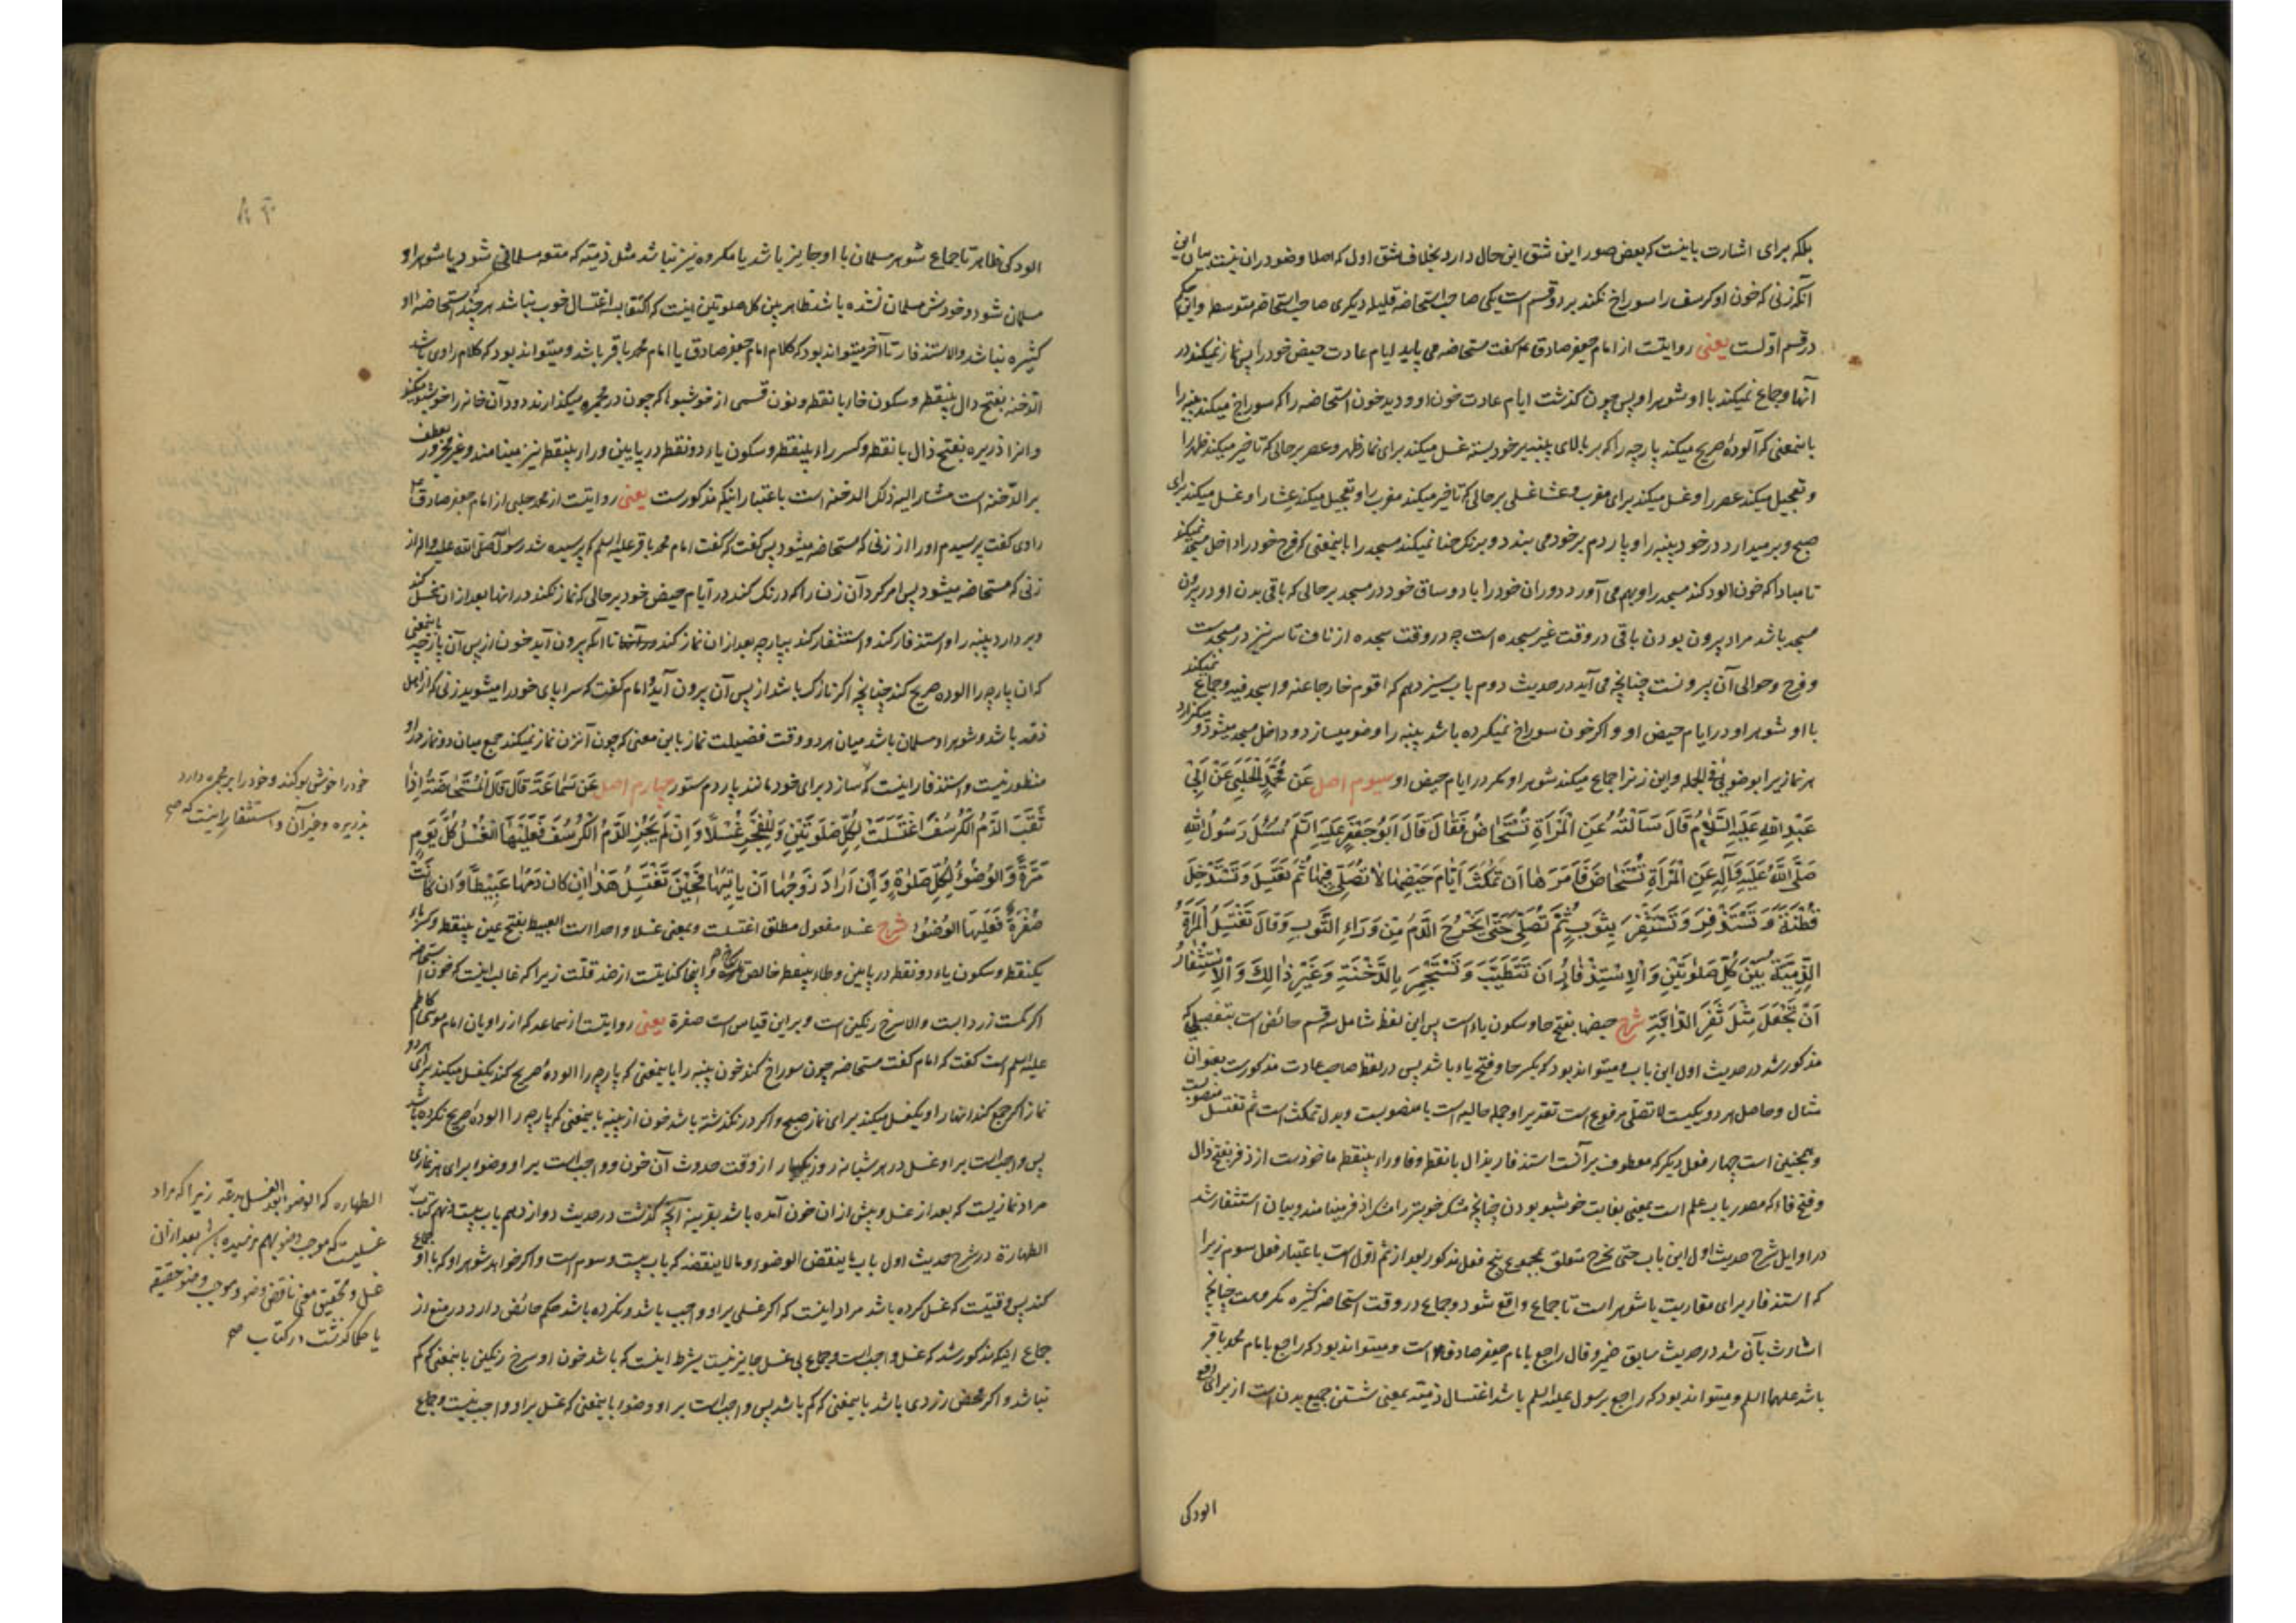 بلکه برای اشارت باینست که بعض صور این شق این حال دارد بخلاف شق اول که اصلا وضو در ان نیست بیان این
آنکه زنی که خون او کرسف را سوراخ نکند بر دو قسم است یکی صاحب استحاضه قلیله دیکری صاحب استحاضه متوسطه و این حکم
در قسم اوّلست یعنی روایتست از امام جعفر صادق ع م کفت مستحاضه می پاید ایام عادت حیض خود را پس نماز نمیکند در
آنها و جماع نمیکند با او شوهر او پس چون کذشت ایام عادت خون او و دید خون استحاضه را که سوراخ میکند پنبه را
باینمعنی که آلودهٔ صریح میکند پارچه را که بر بالای پنبه بر خود بسته غسل میکند برای نماز ظهر و عصر بر حالی که تاخیر میکند ظهر را
و تعجیل میکند عصر را و غسل میکند برای مغرب و عشا غسلی بر حالی که تاخیر میکند مغرب را و تعجیل میکند عشا را و غسل میکند برای
صبح و بر میدارد در خود پنبه را و پاردم بر خود می بندد و برنک حنا نمیکند مسجد را باینمعنی که فرج خود را داخل مسجد نمیکند
تا مبادا که خون الود کند مسجد را و بهم می آورد دو ران خود را با دو ساق خود در مسجد بر حالی که باقی بدن او در بیرون
مسجد باشد مراد بیرون بودن باقی در وقت غیر سجده است چه در وقت سجده از ناف تا سر نیز در مسجدست
و فرج و حوالی آن بیرونست چنانچه می آید در حدیث دوم باب سیزدهم که اقوم خارجا عنه و اسجد فیه و جماع نمیکند
با او شوهر او در ایام حیض او و اکر خون سوراخ نمیکرده باشد پنبه را وضو میسازد و داخل مسجد میشود و میکزارد
هر نماز را بوضوئی فی الجمله و این زنرا جماع میکند شوهر او مکر در ایام حیض او سیوم اصل عَن مُحَمَّدٍ الْحَلَبِيِّ عَنْ اَبِي
عَبْدِ اللهِ عَلَيْهِ السَّلَامُ قَالَ سَاَلْتُهُ عَنِ الْمَرْاَةِ تُسْتَحَاضُ فَقَالَ قَالَ اَبُو جَعْفَرٍ عَلَيْهِ السَّلَمُ سُئِلَ رَسُولُ اللهِ
صَلَّى اللهُ عَلَيْهِ وَآلِهِ عَنِ الْمَرْاَةِ تُسْتَحَاضُ فَاَمَرَهَا اَن تَمْكُثَ اَيَّامَ حَيْضِهَا لَا تُصَلِّي فِيهَا ثُمَّ تَغْتَسِلَ وَتَسْتَدْخِلَ
قُطْنَةً وَ تَسْتَذْفِرَ وَتَسْتَثْفِرَ بِثَوْبٍ ثُمَّ تُصَلِّي حَتّى يَخْرُجَ الدَّمُ مِنْ وَرَاءِ الثَّوبِ وَقَالَ تَغْتَسِلُ الْمَرْاَةُ
الذِّمِّيَّةُ بَيْنَ كُلِّ صَلَوتَيْنِ وَ الْاِسْتِذْفَارُ اَن تَتَطَيَّبَ وَ تَسْتَجْمِرَ بِالدَّخْنَةِ وَغَيْرِ ذَالِكَ وَ الْاِسْتِثْفَارُ
اَنْ تَجْعَلَ مِثْلَ ثَفَرِ الدَّابَّةِ شرح حیضها بفتح حا و سکون یاء است پس این لفظ شامل سه قسم حائض است بتفصیلی که
مذکور شد در حدیث اول این باب و میتواند بود که بکسر حا و فتح یاء باشد پس در لفظ صاحب عادت مذکورست بعنوان
مثال و حاصل هر دو یکیست لا تصلی مرفوع است تقدیرا و جمله حالیه است یا منصوبست و بدل تمکث است ثم تغتسل منصوبست
و همچنین است چهار فعل دیکر که معطوف بر آنست استذفار بذال با نقطه و فا و راء بینقطه ماخوذست از ذفر بفتح ذال
و فتح فاء که مصدر باب علم است بمعنی بغایت خوشبو بودن چنانچه مشک خوبتر را مشک اذفر مینامند و بیان استثفار شد
در اوایل شرح حدیث اول این باب حتی یخرج متعلق بمجموع پنج فعل مذکور بعد از ثم اوّل است باعتبار فعل سوم زیرا
که استذفار برای مقاربت با شوهر است تا جماع واقع شود و جماع در وقت استحاضه کثیره مکروهست چنانچه
اشارت بآن شد در حدیث سابق ضمیر و قال راجع بامام جعفر صادق است و میتواند بود که راجع بامام محمد باقر
باشد علیهما السلم و میتواند بود که راجع برسول علیه السلم باشد اغتسال ذمّیّه بمعنی شستن جمیع بدن است از برای دفع
الودکی
الودکی ظاهر تا جماع شوهر مسلمان با او جایز باشد یا مکروه نیز نباشد مثل ذمّیّه که متعه مسلمانی شود یا شوهر او
مسلمان شود و خودش مسلمان نشده باشد ظاهر بین کل صلوتین اینست که اکتفا بسه اغتسال خوب نباشد هر چند که استحاضه او
کثیره نباشد و الاستذفار تا آخر میتواند بود که کلام امام جعفر صادق یا امام محمد باقر باشد و میتواند بود که کلام راوی باشد
الدخنه بفتح دال بینقطه و سکون خاء با نقطه و نون قسمی از خوشبوها که چون در مجمره میکذارند دود آن خانه را خوشبو میکند
و انرا ذریره بفتح ذال با نقطه و کسر راء بینقطه و سکون یاء دو نقطه در پایین و راء بینقطه نیز مینامند و غیر مجرور بعطف
بر الدّخنه است مشار الیه ذلک الدخنه است باعتبار اینکه مذکورست یعنی روایتست از محمد حلبی از امام جعفر صادق ع
راوی کفت پرسیدم او را از زنی که مستحاضه میشود پس کفت که کفت امام محمد باقر علیه السلم که پرسیده شد رسول اللّه صلی الله علیه و اله از
زنی که مستحاضه میشود پس امر کرد آن زن را که درنک کند در ایّام حیض خود بر حالی که نماز نکند در انها بعد از ان غسل کند
و بر دارد پنبه را و استذفار کند و استثفار کند بپارچه بعد از ان نماز کند تا آنکه بیرون آید خون از پس آن پارچه باینمعنی
که ان پارچه را الوده صریح کند چنانچه اکر نازک باشد از پس آن بیرون آید و امام کفت که سراپای خود را میشوید زنی که از اهل
ذمّه باشد و شوهر او مسلمان باشد میان هر دو وقت فضیلت نماز باین معنی که چون آنزن نماز نمیکند جمع میان دو نماز در او
منظور نیست و استذفار اینست که سازد برای خود مانند پاردم ستور چهارم اصل عَن سَمَاعَةَ قَالَ قَالَ الْمُسْتَحَاضَةُ اِذَا
ثَقَبَ الدَّمُ الْكُرْسُفَ اغْتَسَلَتْ لِكُلِّ صَلَوتَيْنِ وَلِلْفَجْرِ غُسْلًا وَ اِنْ لَمْ يَجُزِ الدَّمُ الْكُرْسُفَ فَعَلَيْهَا الْغُسْلُ كُلَّ يَومٍ
مَرَّةً وَالْوُضُوءُ لِكُلِّ صَلَوةٍ وَ اِن اَرَادَ زَوْجُهَا اَن يَاتِيَهَا فَحِيْنَ تَغْتَسِلُ هَذَا اِن كَانَ دَمُهَا عَبِيطًا وَ اِن كَانَت
صُفْرَةً فَعَلَيْهَا الْوُضُوءُ شرح غسلا مفعول مطلق اغتسلت و بمعنی غسلا واحدا است العبیط بفتح عین بینقطه و کسر باء
یکنقطه و سکون یاء دو نقطه در پایین و طاء بینقطه خالص و اینجا کنایتست از ضد قلّت زیرا که غالب اینست که خون استحاضه
اکر کمست زردابست و الا سرخ رنکین است و بر این قیاس است صفرة یعنی روایتست از سماعه که از راویان امام موسی کاظم
علیه السلم است کفت که امام کفت مستحاضه چون سوراخ کند خون پنبه را باینمعنی که پارچه را الودهٔ صریح کند یکغسل میکند برای هر دو
نماز اکر جمع کند انها را و یکغسل میکند برای نماز صبح و اکر در نکذشته باشد خون از پنبه باینمعنی که پارچه را الودهٔ صریح نکرده باشد
پس واجبست بر او غسل در هر شبانه روز یکبار از وقت حدوث آن خون و واجبست بر او وضوء برای هر نمازی
مراد نمازیست که بعد از غسل و پیش از ان خون آمده باشد بقرینه آنچه کذشت در حدیث دوازدهم باب بیست و نهم کتاب
الطهارة در شرح حدیث اول باب ما ینقض الوضوء و ما لا ینقضه که باب بیست و سوم است و اکر خواهد شوهر او که با او جماع
کند پس وقتیست که غسل کرده باشد مراد اینست که اکر غسلی بر او واجب باشد و نکرده باشد حکم حائض دارد در منع از
جماع اینکه مذکور شد که غسل واجبست و جماع بی غسل جایز نیست بشرط اینست که باشد خون او سرخ رنکین باینمعنی که کم
نباشد و اکر محض زردی باشد باینمعنی که کم باشد پس واجبست بر او وضوء باینمعنی که غسل بر او واجب نیست و جماع
خود را خوش بو کند و خود را بر مجمره دارد
بذریره و غیر آن و استثفار اینست که صح
الطهاره که الوضوء بعد الغسل بدعة زیرا که مراد
غسلیست که موجب وضو بهم نرسیده باشد بعد از آن
غسل و تحقیق معنی ناقض وضو و موجب وضو حقیقة
یا حکما کذشت در کتاب صح